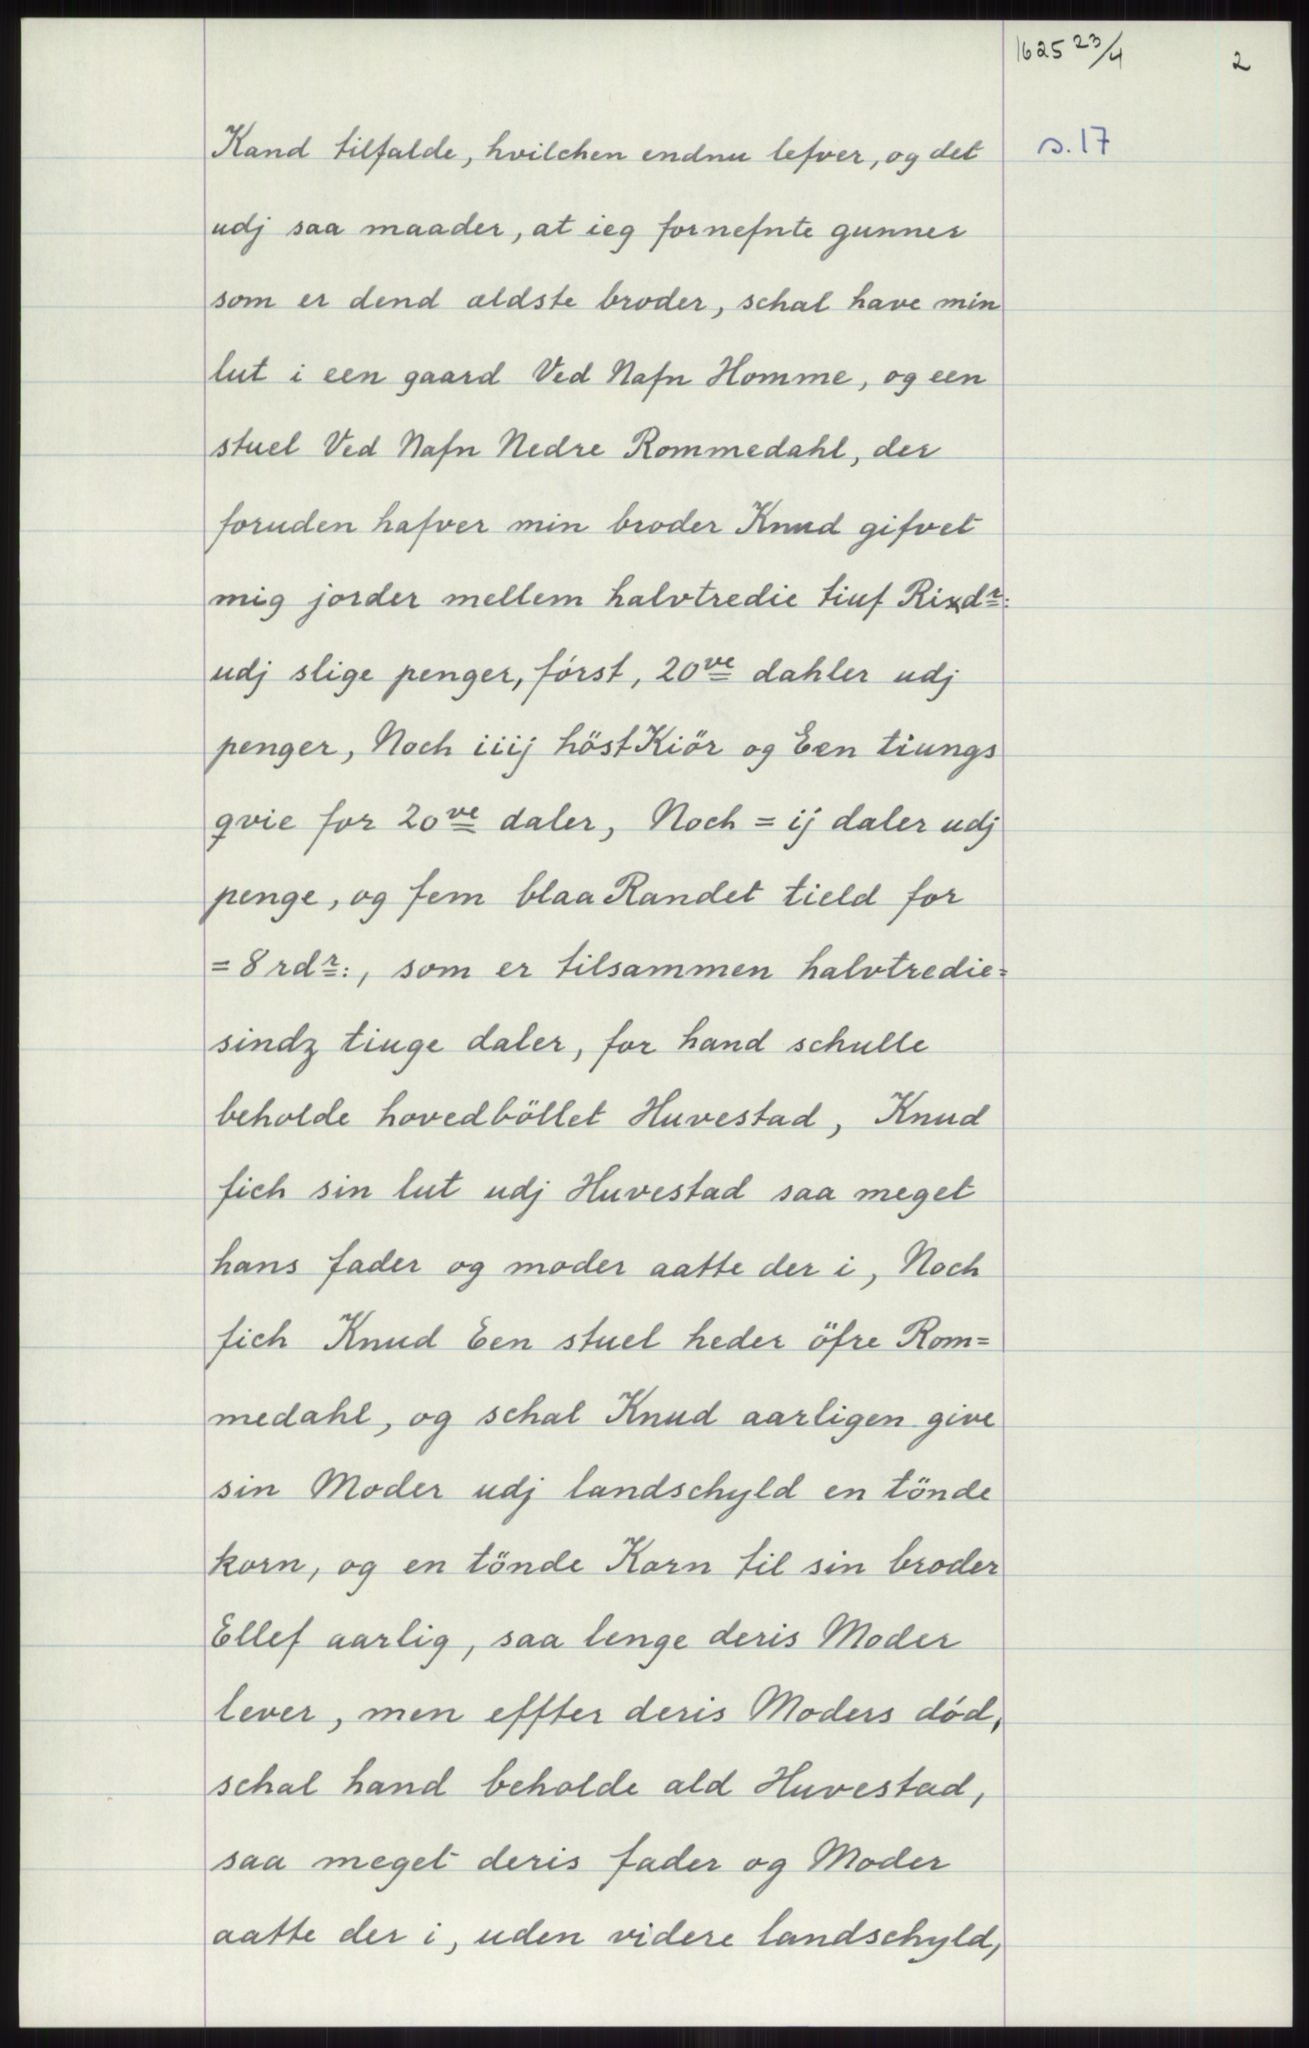 1625 23/4
2
s. 17
Kand tilfalde, hvilchen endnu lefver, og det
udj saa maader, at ieg fornefnte gunner
som er dend ældste broder, schal have min
lut i een gaard Ved Nafn Homme, og een
stuel Ved Nafn Nedre Rommedahl, der
foruden hafver min broder Knud gifvet
mig jorder mellem halvtredie tiuf Rixdr:
udj slige penger, först, 20ve dahler udj
penger, Noch iiij höst Kiör og Een tiungs
qvie for 20ve daler, Noch = ij daler udj
penge, og fem blaa Randet tield for
= 8 rdr:, som er tilsammen halvtredie=
sindz tiuge daler, for hand schulle
beholde hovedböllet Huvestad, Knud
fich sin lut udj Huvestad saa meget
hans fader og moder aatte der i, Noch
fich Knud Een stuel heder öfre Rom=
medahl, og schal Knud aarligen give
sin Moder udj landschyld en tönde
korn, og en tönde Korn til sin broder
Ellef aarlig, saa lenge deris Moder
lever, men effter deris Moders död,
schal hand beholde ald Huvestad,
saa meget deris fader og Moder
aatte der i, uden videre landschyld,